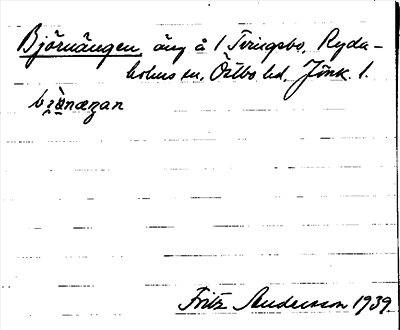 Björnängen, äng å 1 Toringsbo, Ryda-
holms sn, Östbo hd, Jönk. l.
bɉὼnæŋan
Fritz Andersson 1939